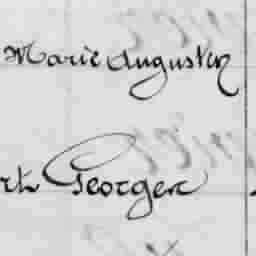 Marie Augustin
Georger